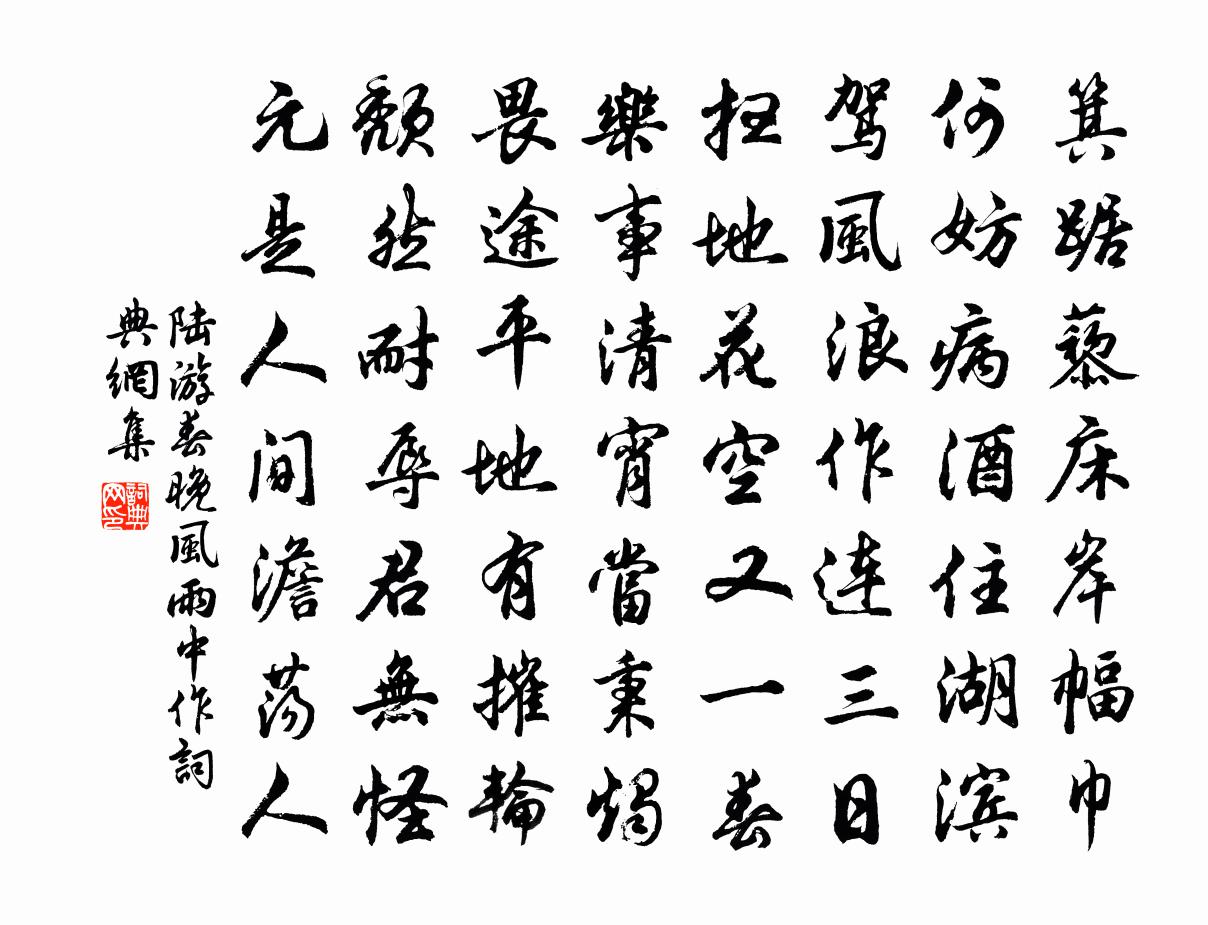 箕踞藜床岸幅巾
何妨病酒住湖滨
駕風浪作連三日
掃地花空又一春
樂事清宵當秉燭
畏途平地有摧輪
頹然耐辱君無怪
元是人間澹蕩人
陸游春晚風雨中作詞
典網集
詞典
网印